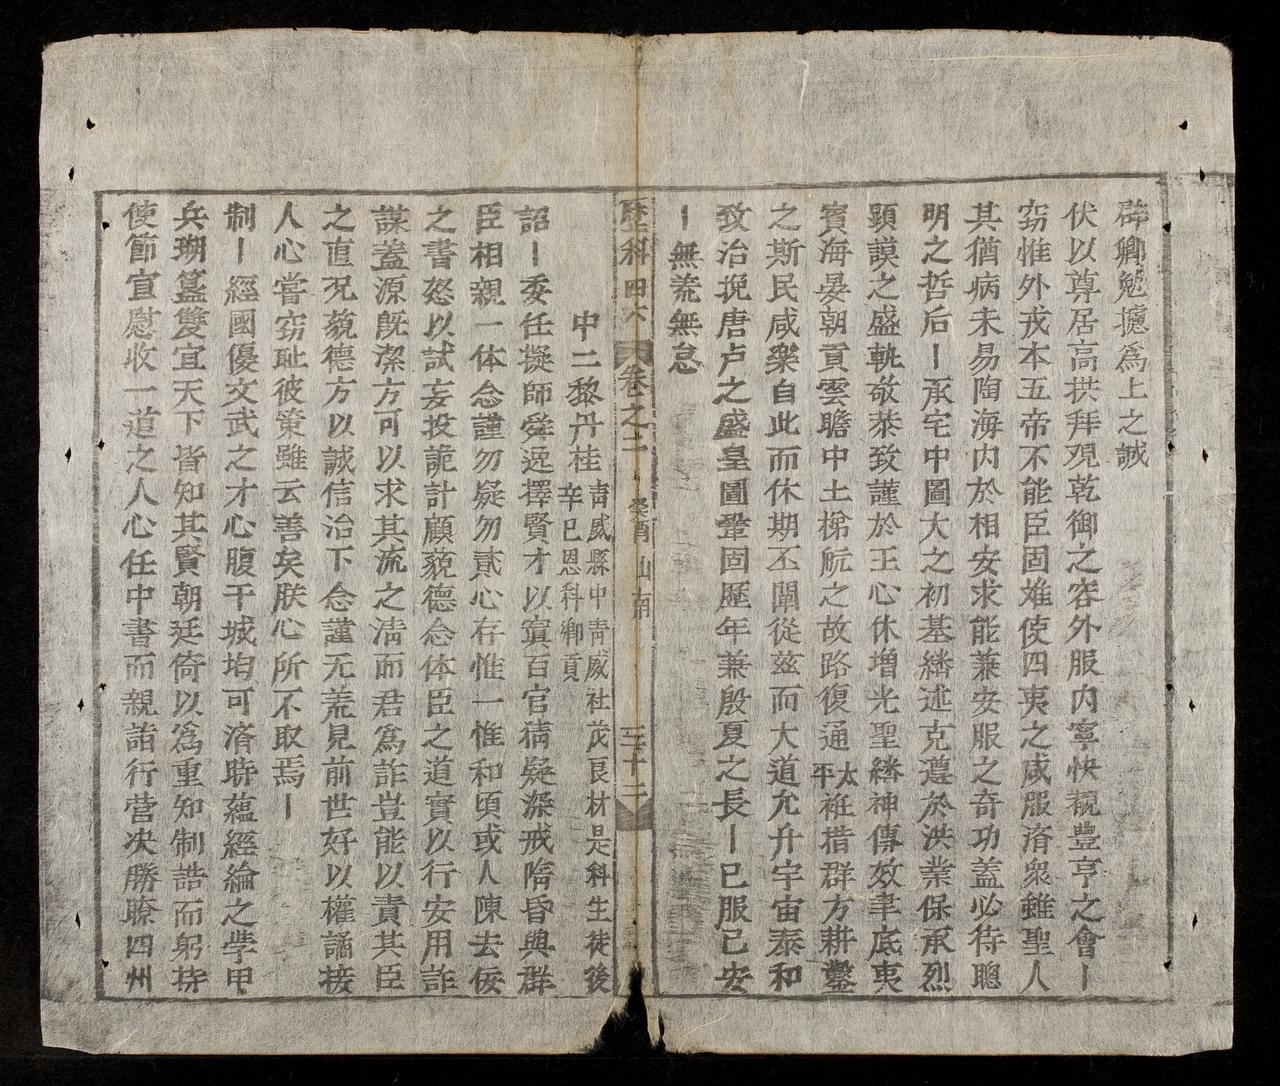 群卿勉攄爲上之誠
伏以尊居高拱拜覌乾御之容外服内寧快覩豊亨之會〡
窃惟外戎本五帝不能臣固难使四夷之咸服済衆虽聖人
其猶病未易陶海内於相安求能兼安服之竒功盖必待聰
明之哲后〡承宅中圖大之初基繼述克遵於洪業保承烈
顕謨之盛軌敬恭致謹於王心休增光聖繼神傳效聿底夷
賓海晏朝貢雲瞻中土梯航之故路復通太平袵措群方耕鑿
之斯民咸樂自此而休期丕闡從茲而大道允升宇宙泰和
致治挽唐卢之盛皇圖鞏固歷年兼殷夏之長〡已服已安
〡無荒無怠
歷科四六 卷之二 癸酉山南 三十二
中二黎丹桂 青威縣中青威社茂良材是科生徒後辛巳恩科鄉貢
詔〡委任擬師舜远擇賢才以賓百官猜疑深戒隋昏與群
臣相親一体念謹勿疑勿貳心存惟一惟和頃或人陳去佞
之書怒以試妄投詭計顧藐德念体臣之道實以行安用詐
謀盖源旣潔方可以求其流之清而君爲詐豈能以責其臣
之直况藐德方以誠信治下念謹无荒見前世好以權譎接
人心嘗窃耻彼策雖云善矣朕心所不取焉〡
制〡經國優文武之才心腹干城均可済時蘊經綸之学甲
兵瑚簋雙宜天下皆知其賢朝廷倚以爲重知制誥而躬持
使節宣慰收一道之人心任中書而親詣行营决勝瞭四州